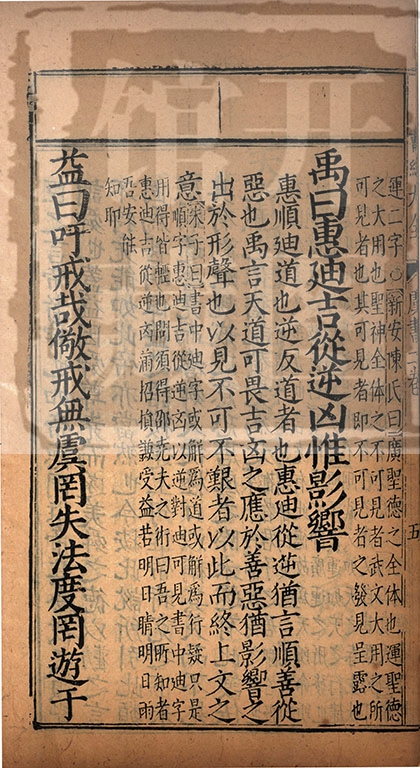 運二字○新安陳氏曰廣聖德之全體也運聖德
之大用也聖神全體之不可見者武文大用之所
可見者也其可見者即不可見者之發見呈露也
禹曰惠迪吉從逆凶惟影響
惠順迪道也逆反道者也惠迪從逆猶言順善從
惡也禹言天道可畏吉凶之應於善惡猶影響之
出於形聲也以見不可不艱者以此而終上文之
意朱子曰書中迪字或解為道或解為行疑只是
順字惠迪吉從逆凶以逆對迪可見書中迪字
用得皆輕也問須得邵克夫之術曰吾之所知者
惠迪吉從逆凶滿招損謙受益若明日晴明日雨
吾安能
知耶
益曰吁戒哉儆戒無虞罔失法度罔遊于
五